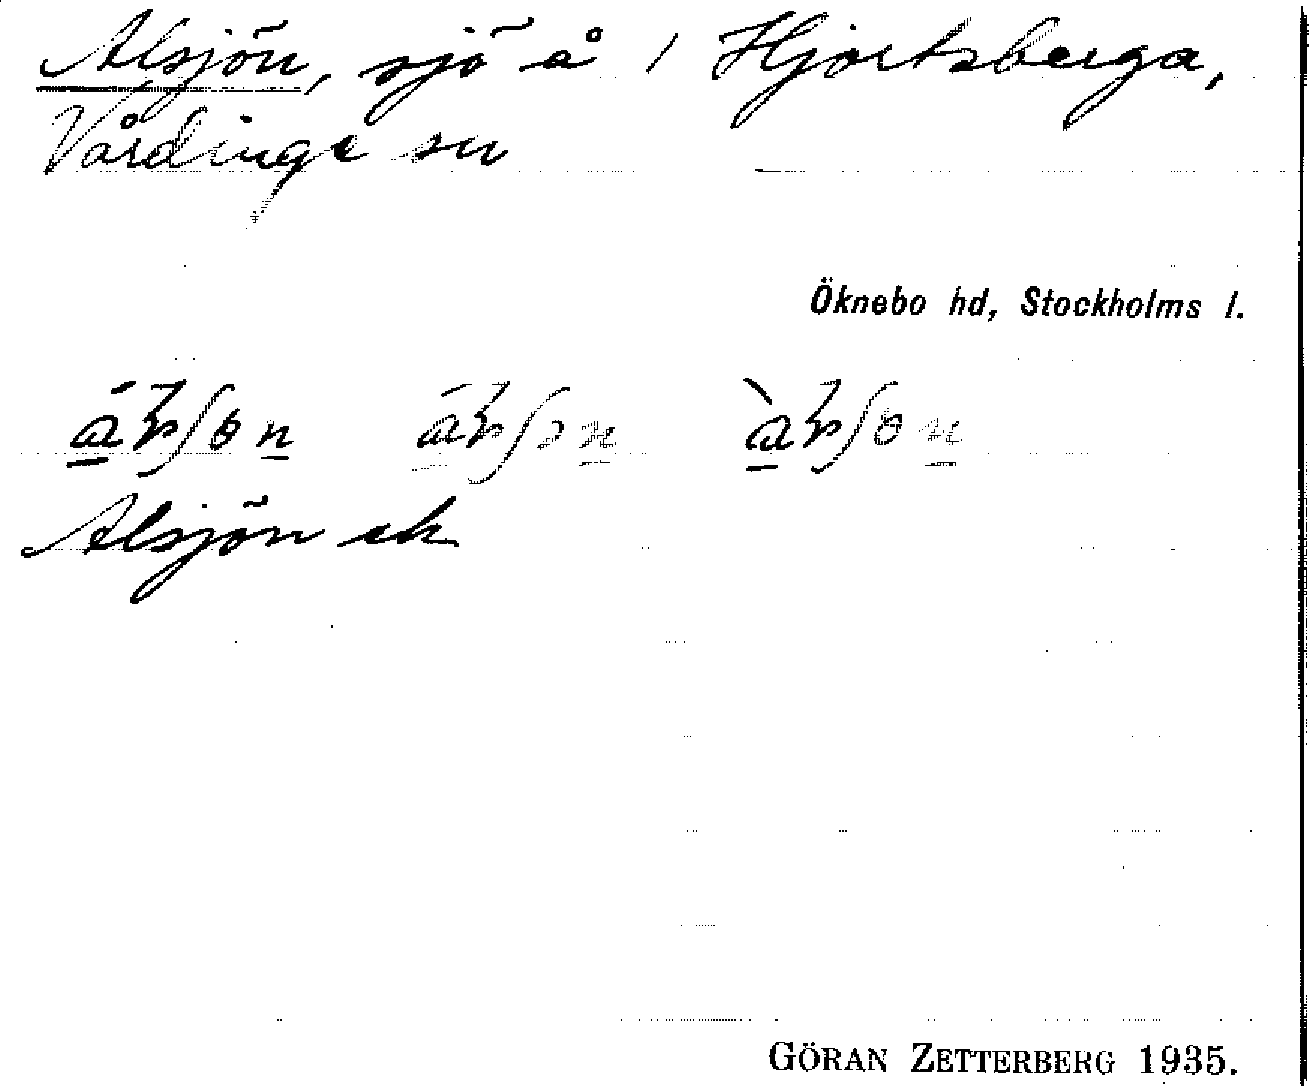 Alsjön, sjö å 1 Hjortsberga,
Vårdinge sn
Öknebo hd, Stockholms l.
Alsjön ek
GÖRAN ZETTERBERG 1935.